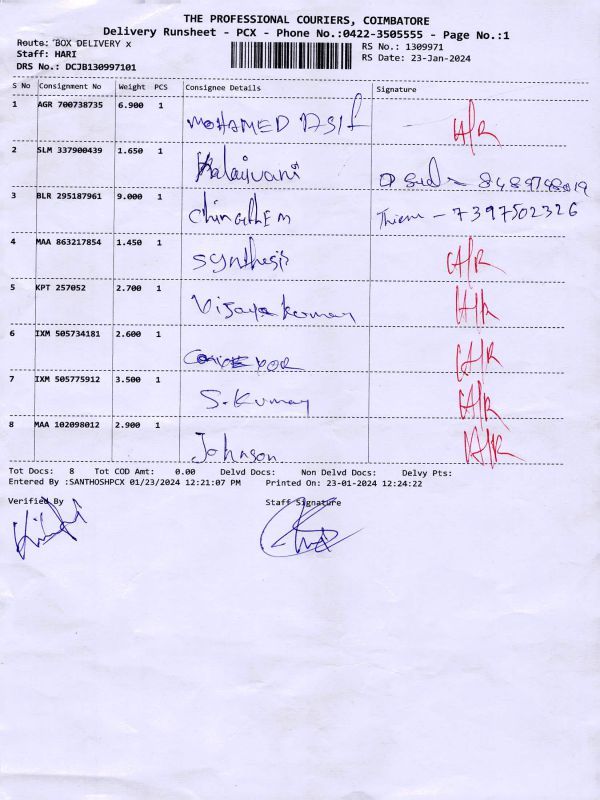 THE PROFESSIONAL COURIERS, COIMBATORE
Delivery Runsheet - PCX - Phone No.:0422-3505555 - Page No.:1
Route: BOX DELIVERY x
Staff: HARI
DRS No.: DCJB130997101
RS No.: 1309971
RS Date: 23-Jan-2024
S No Consignment No Weight PCS Consignee Details Signature
1 AGR 700738735 6.900 1 MOHAMED ASIF A/R
2 SLM 337900439 1.650 1 Kalaivani
3 BLR 295187961 9.000 1 - 7397502326
4 MAA 863217854 1.450 1 Synthesis A/R
5 KPT 257052 2.700 1 Vijaya kumar A/R
6 IXM 505734181 2.600 1 A/R
7 IXM 505775912 3.500 1 S. Kumar A/R
8 MAA 102098012 2.900 1 Johnson A/R
Tot Docs: 8 Tot COD Amt: 0.00 Delvd Docs: Non Delvd Docs: Delvy Pts:
Entered By :SANTHOSHPCX 01/23/2024 12:21:07 PM Printed On: 23-01-2024 12:24:22
Verified By Staff Signature